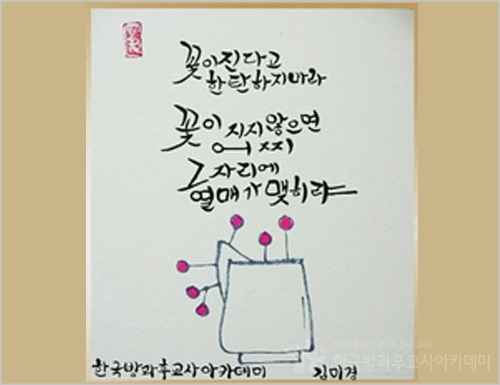 꽃이진다고
한탄하지마라
꽃이 지지않으면
어찌
그자리에
열매가 맺히랴
한국방과후교사아카데미 김미경
한국방과후교사아카데미